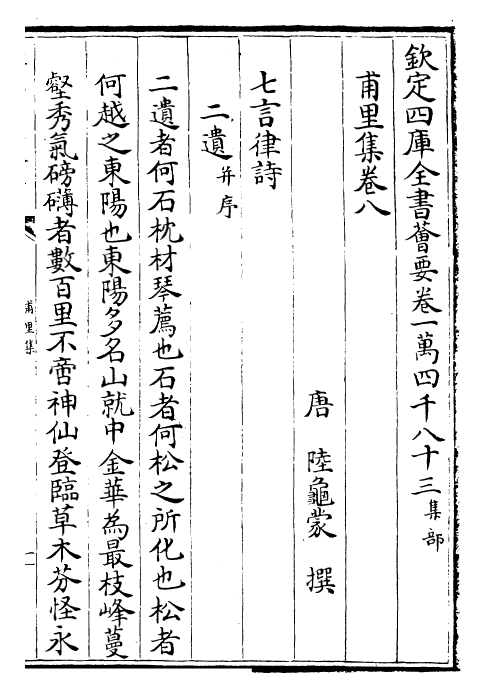 欽定四庫全書薈要卷一萬四千八十三集部
甫里集卷八
唐 陸龜蒙 撰
七言律詩
二遺并序
二遺者何石枕材琴薦也石者何松之所化也松者
何越之東陽也東陽多名山就中金華為最枝峰蔓
壑秀氣磅礴者數百里不啻神仙登臨草木芬怪永
甫里集